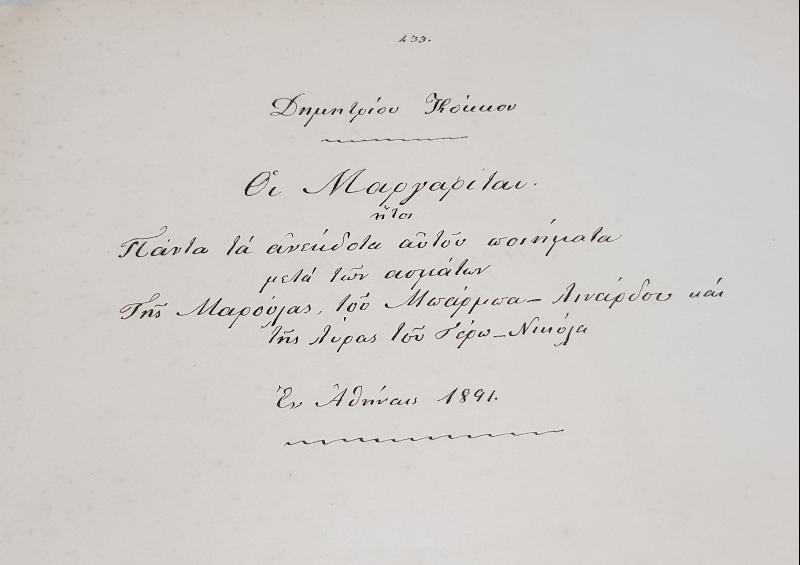 433.
Δημητρίου Κόκκου
Οἱ Μαργαρίται.
ἤτοι
Πάντα τά ἀνέκδοτα αὐτοῦ ποιήματα
μετά τῶν ασμάτων
Τῆς Μαρούλας, τοῦ Μπάρμπα-Λινάρδου καί
τῆς Λύρας τοῦ Γέρω-Νικόλα
Ἐν Ἀθήναις 1891.